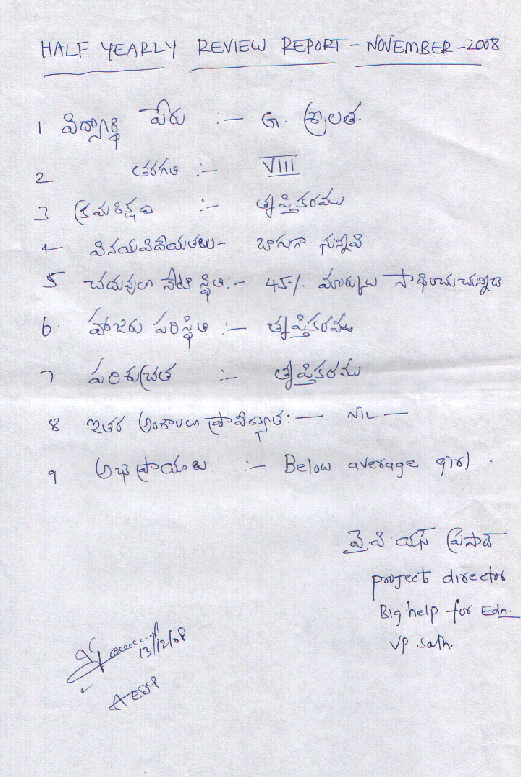 HALF YEARLY REVIEW REPORT - NOVEMBER - 2008
1 విద్యార్థి పేరు :- G. శ్రీలత.
2 తరగతి :- VIII
3 క్రమశిక్షణ :- తృప్తికరము
4- వినయవిధేయతలు- బాగుగా నున్నవి
5 చదువులో నేటి స్థితి:- 45%. మార్కులు సాధించుచున్నది
6. హాజరు పరిస్థితి :- తృప్తికరము
7 పరిశుభ్రత :- తృప్తికరము
8 ఇతర అంశాలలో ప్రావీణ్యత:- NIL -
9 అభిప్రాయం :- Below average girl.
వై. వి. యస్ ప్రసాద్
project director
Big help for Edn.
VP. Sath.
13/12/08